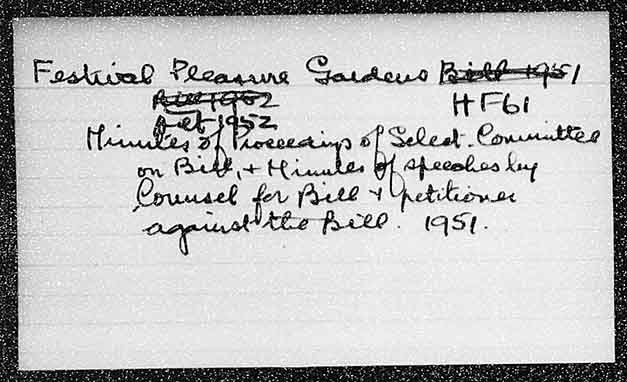 Festival Pleasure Gardens Bill 1951
Bill 1952 HF61
Act 1952
Minutes of Proceedings of Select Committee
on Bill, + Minutes of speeches by
Counsel for Bill + petitioner
against the Bill. 1951.